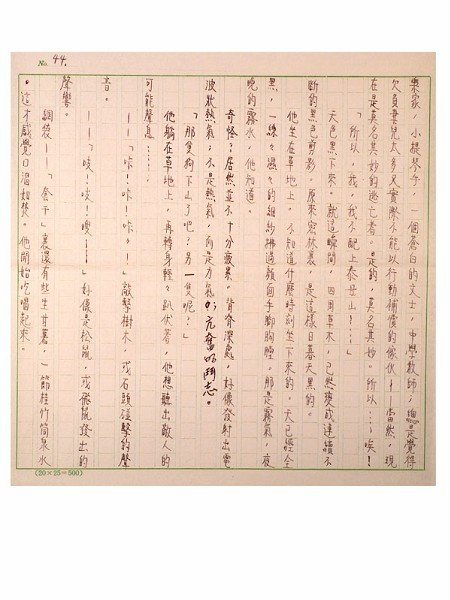 No. 44.
樂家，小提琴手，一個蒼白的文士，中學教師；細說是覺得
欠負妻兒太多又實際不能以行動補償的傢伙──當然，現
在是莫名其妙的逃亡者。是的，莫名其妙。所以……唉！
「所以，我，我不配上泰母山！……」
天色黑下來。就這瞬間，四周草木，已然變成連續不
斷的黑色剪影。原來密林裏，是這樣日暮天黑的。
他坐在草地上。不知道什麼時刻坐下來的。天已經全
黑，一絲々濕々的細紗拂過顏面手腳胸膛。那是霧氣，夜
晚的露水，他知道。
奇怪？居然並不十分疲累。背脊深處，好像發射出電
波狀熱氣，不是熱氣，而是力氣，亢奮的鬥志。
「那隻狗下山了吧？另一隻呢？」
他躺在草地上，再轉身輕々趴伏著，他想聽出敵人的
可能聲息……。
──「咔！咔！咔々！」敲擊樹木，或石頭碰擊的聲
音。
──「吱！吱！嗖！──」好像是松鼠，或飛鼠發出的
聲響。
網袋──「奈干」裏還有些生甘薯，一節桂竹筒泉水
。這才感覺口渴如焚。他開始吃喝起來。
(20×25=500)